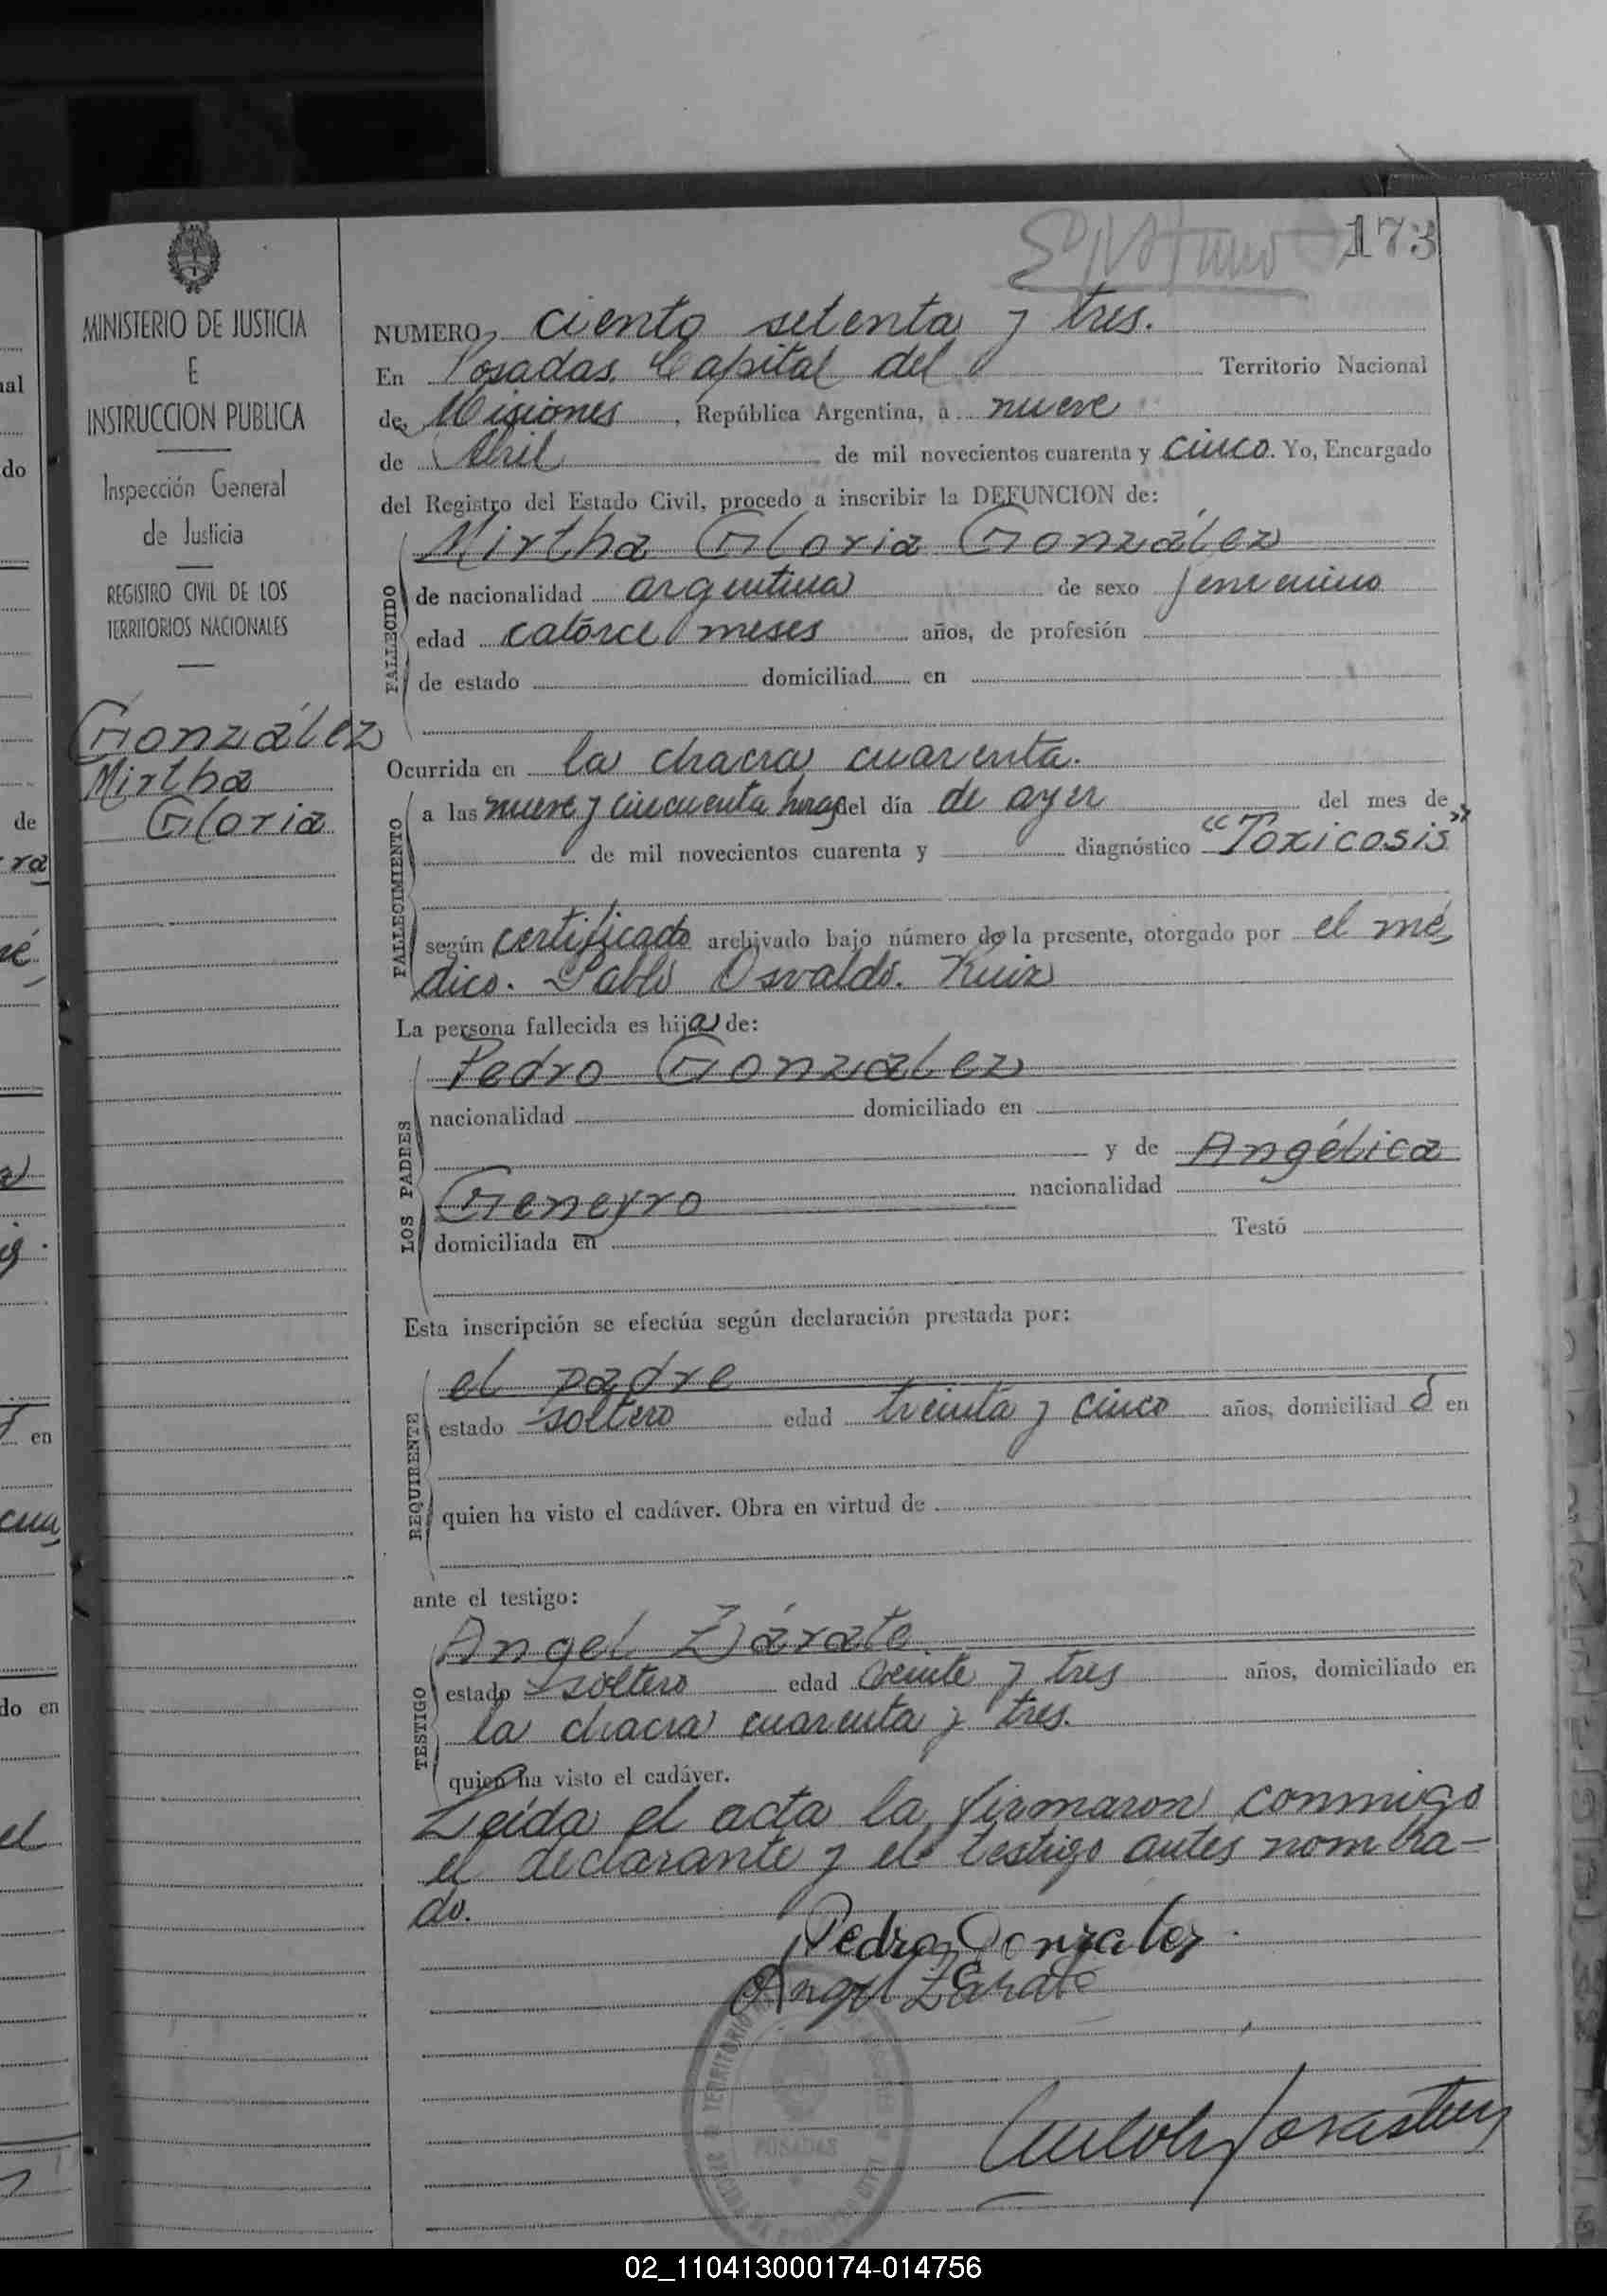 173
MINISTERIO DE JUSTICIA
E
INSTRUCCION PUBLICA
Inspección General
de Justicia
REGISTRO CIVIL DE LOS
TERRITORIOS NACIONALES
González
Mirtha
Gloria
NUMERO ciento setenta y tres.
En Posadas. Capital del Territorio Nacional
de Misiones, República Argentina, a nueve
de Abril de mil novecientos cuarenta y cinco. Yo, Encargado
del Registro del Estado Civil, procedo a inscribir la DEFUNCION de:
FALLECIDO
Mirtha Gloria González
de nacionalidad argentina de sexo femenino
edad catorce meses años, de profesión
de estado domiciliad en
Ocurrida en la chacra cuarenta.
FALLECIMIENTO
a las nueve y cincuenta horas del día de ayer del mes de
de mil novecientos cuarenta y diagnóstico "Toxicosis"
según certificado archivado bajo número de la presente, otorgado por el mé
dico. Pablo Osvaldo. Ruiz
La persona fallecida es hija de:
LOS PADRES
Pedro González
nacionalidad domiciliado en
y de Angélica
Geneyro nacionalidad
domiciliada en Testó
Esta inscripción se efectúa según declaración prestada por:
REQUIRENTE
el padre
estado soltero edad treinta y cinco años, domiciliad o en
quien ha visto el cadáver. Obra en virtud de
ante el testigo:
TESTIGO
Angel Zárate
estado soltero edad veinte y tres años, domiciliado en
la chacra cuarenta y tres.
quien ha visto el cadáver.
Leída el acta la firmaron conmigo
el declarante y el testigo antes nombra-
do.
Pedro Gonzalez
Angel Zárate
POSADAS
02_110413000174-014756